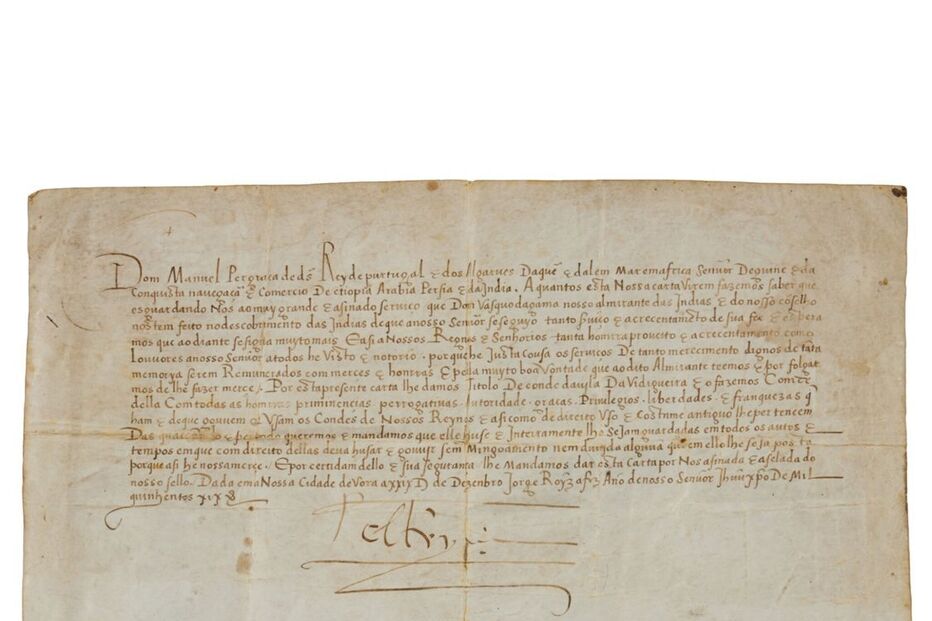 Dom Manuel Per graca de ds̃ Rey de purtugal ⁊ dos Algarves Daquẽ ⁊ dalem Mar em africa Senũor De guine ⁊ da
Conquista navegaçã ⁊ Comercio De etiopia Arabia Persia ⁊ da India. A quantos esta Nossa carta Virem fazemos saber que
esguardando Nos ao muy grande ⁊ asinado serviço que Don Vasquo da gama nosso almirante das Indias ⁊ do nosso cõselho
nos tem feito no descobrimento das Indias de que a nosso Senũor se seguyo tanto ⁊ acrecentamẽto de sua fee ⁊ espera
mos que ao diante se sigua muyto mais E asi a Nossos Reynos ⁊ Senhorios tanta homrra proveito ⁊ acrecentamento como
Louvores a nosso Senũor a todos he Visto ⁊ notorio. por que he Justa Cousa os serviços De tanto merecimento dignos de tãta
memorya serem Remunerados com merces ⁊ honrras ⁊ pella muyto boa Võntade que ao dito Almirante teemos ⁊ por folgar
mos de lhe fazer merce. Por esta presente carta lhe damos Titolo De conde da vila Da Vidigueira ⁊ o fazemos Comde
della Com todas as homrras priminencias perrogativas Autoridade gracas Privilegios liberdades ⁊ franquezas q̃
ham ⁊ de que gouvem ⁊ Usam os Condes de Nossos Reynos ⁊ asi como de direito Uso ⁊ Costume antiguo lhe pertencem
Das quaes ⁊ queremos ⁊ mandamos que elle huse ⁊ Interramente lhe Sejam guardadas em todos os autos ⁊
tempos em que com direito dellas deva husar ⁊ gouvir sem Mingoamento nem duvida alguma que em ello lhe seja posta
porque asi he nossa merce. E por certidam dello ⁊ sua segurança lhe Mandamos dar esta Carta por Nos asinada ⁊ aselada do
nosso sello. Dada em a Nossa Cidade de Vora a xxix D de Dezenbro Jorge Royz a fez Año de nosso Senũor Jhuũ xp̃o De Mil
quinhentos xix